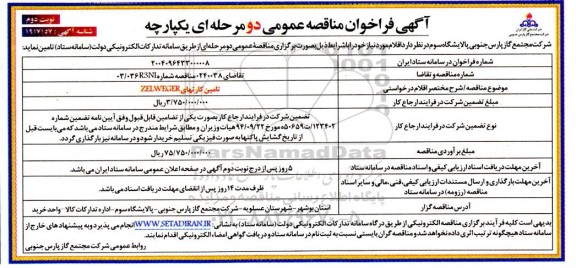 آگهی فراخوان مناقصه عمومی دو مرحله ای یکپارچه
نوبت دوم
شناسه آگهی : ۱۹۱۷۰۵۷
شرکت مجتمع گاز پارس جنوبی پالایشگاه سوم در نظر دارد اقلام مورد نیاز خود را با شرایط ذیل بصورت برگزاری مناقصه عمومی دو مرحله‌ای از طریق سامانه تدارکات الکترونیکی دولت (سامانه ستاد) تامین نماید:
شماره فراخوان در سامانه ستاد ایران
۲۰۰۴۰۹۶۴۳۳۰۰۰۰۰۸
شماره مناقصه و تقاضا
تقاضای ۲۴۰۰۳۸- مناقصه شماره RSNI-۰۳/۰۳۶
موضوع مناقصه/ شرح مختصر اقلام درخواستی
تامین کارتهای ZELWEGER
مبلغ تضمین شرکت در فرایند ارجاع کار
۳/۷۵۰/۰۰۰/۰۰۰ ریال
نوع تضمین شرکت در فرایند ارجاع کار
تضمین شرکت در فرایند ارجاع کار بصورت یکی از تضامین قابل قبول وفق آیین نامه تضمین شماره ۱۲۳۴۰۲/ت۵۰۶۵۹ه مورخ ۹۴/۰۹/۲۲ هیات وزیران و مطابق شرایط مندرج در سامانه ستاد می باشد که می بایست قبل از تاریخ گشایش پاکتها به صورت فیزیکی تسلیم خریدار شود و در سامانه نیز بارگذاری گردد.
مبلغ برآوردی مناقصه
۷۵/۷۵۰/۰۰۰/۰۰۰ ریال
آخرین مهلت دریافت اسناد ارزیابی کیفی و اسناد مناقصه در سامانه ستاد
۵ روز پس از درج نوبت دوم آگهی در صفحه اعلان عمومی سامانه ستاد ایران می باشد.
آخرین مهلت بارگذاری و ارسال مستندات ارزیابی کیفی، فنی، مالی و سایر اسناد مناقصه (رزومه) در سامانه ستاد
ظرف مدت ۱۴ روز پس از انقضای مهلت دریافت اسناد می باشد.
آدرس مناقصه گزار
استان بوشهر- شهرستان عسلویه- شرکت مجتمع گاز پارس جنوبی- پالایشگاه سوم- اداره تدارکات کالا- واحد خرید
بدیهی است کلیه فرآیند برگزاری مناقصه الکترونیکی از طریق درگاه سامانه تدارکات الکترونیکی دولت (سامانه ستاد) به نشانی: WWW.SETADIRAN.IR انجام می پذیرد و به پیشنهادهای خارج از
سامانه ستاد هیچگونه ترتیب اثری داده نخواهد شد و مناقصه گران بایستی نسبت به ثبت نام در سامانه ستاد و دریافت گواهی امضاء الکترونیکی اقدام نمایند.
روابط عمومی شرکت مجتمع گاز پارس جنوبی